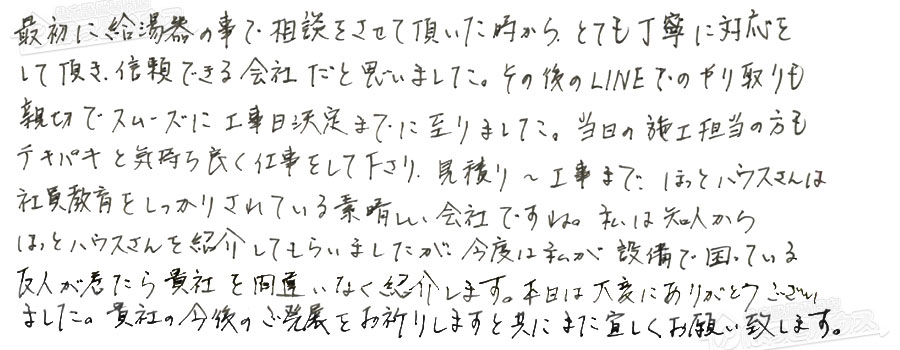 最初に給湯器の事で相談をさせて頂いた時から、とても丁寧に対応を
して頂き、信頼できる会社だと思いました。その後のLINEでのやり取りも
親切でスムーズに工事日決定までに至りました。当日の施工担当の方も
テキパキと気持ち良く仕事をして下さり、見積り～工事まで、ほっとハウスさんは
社員教育をしっかりされている素晴しい会社ですね。私は知人から
ほっとハウスさんを紹介してもらいましたが、今度は私が設備で困っている
友人が居たら貴社を間違いなく紹介します。本日は大変にありがとうござい
ました。貴社の今後のご発展をお祈りしますと共にまた宜しくお願い致します。